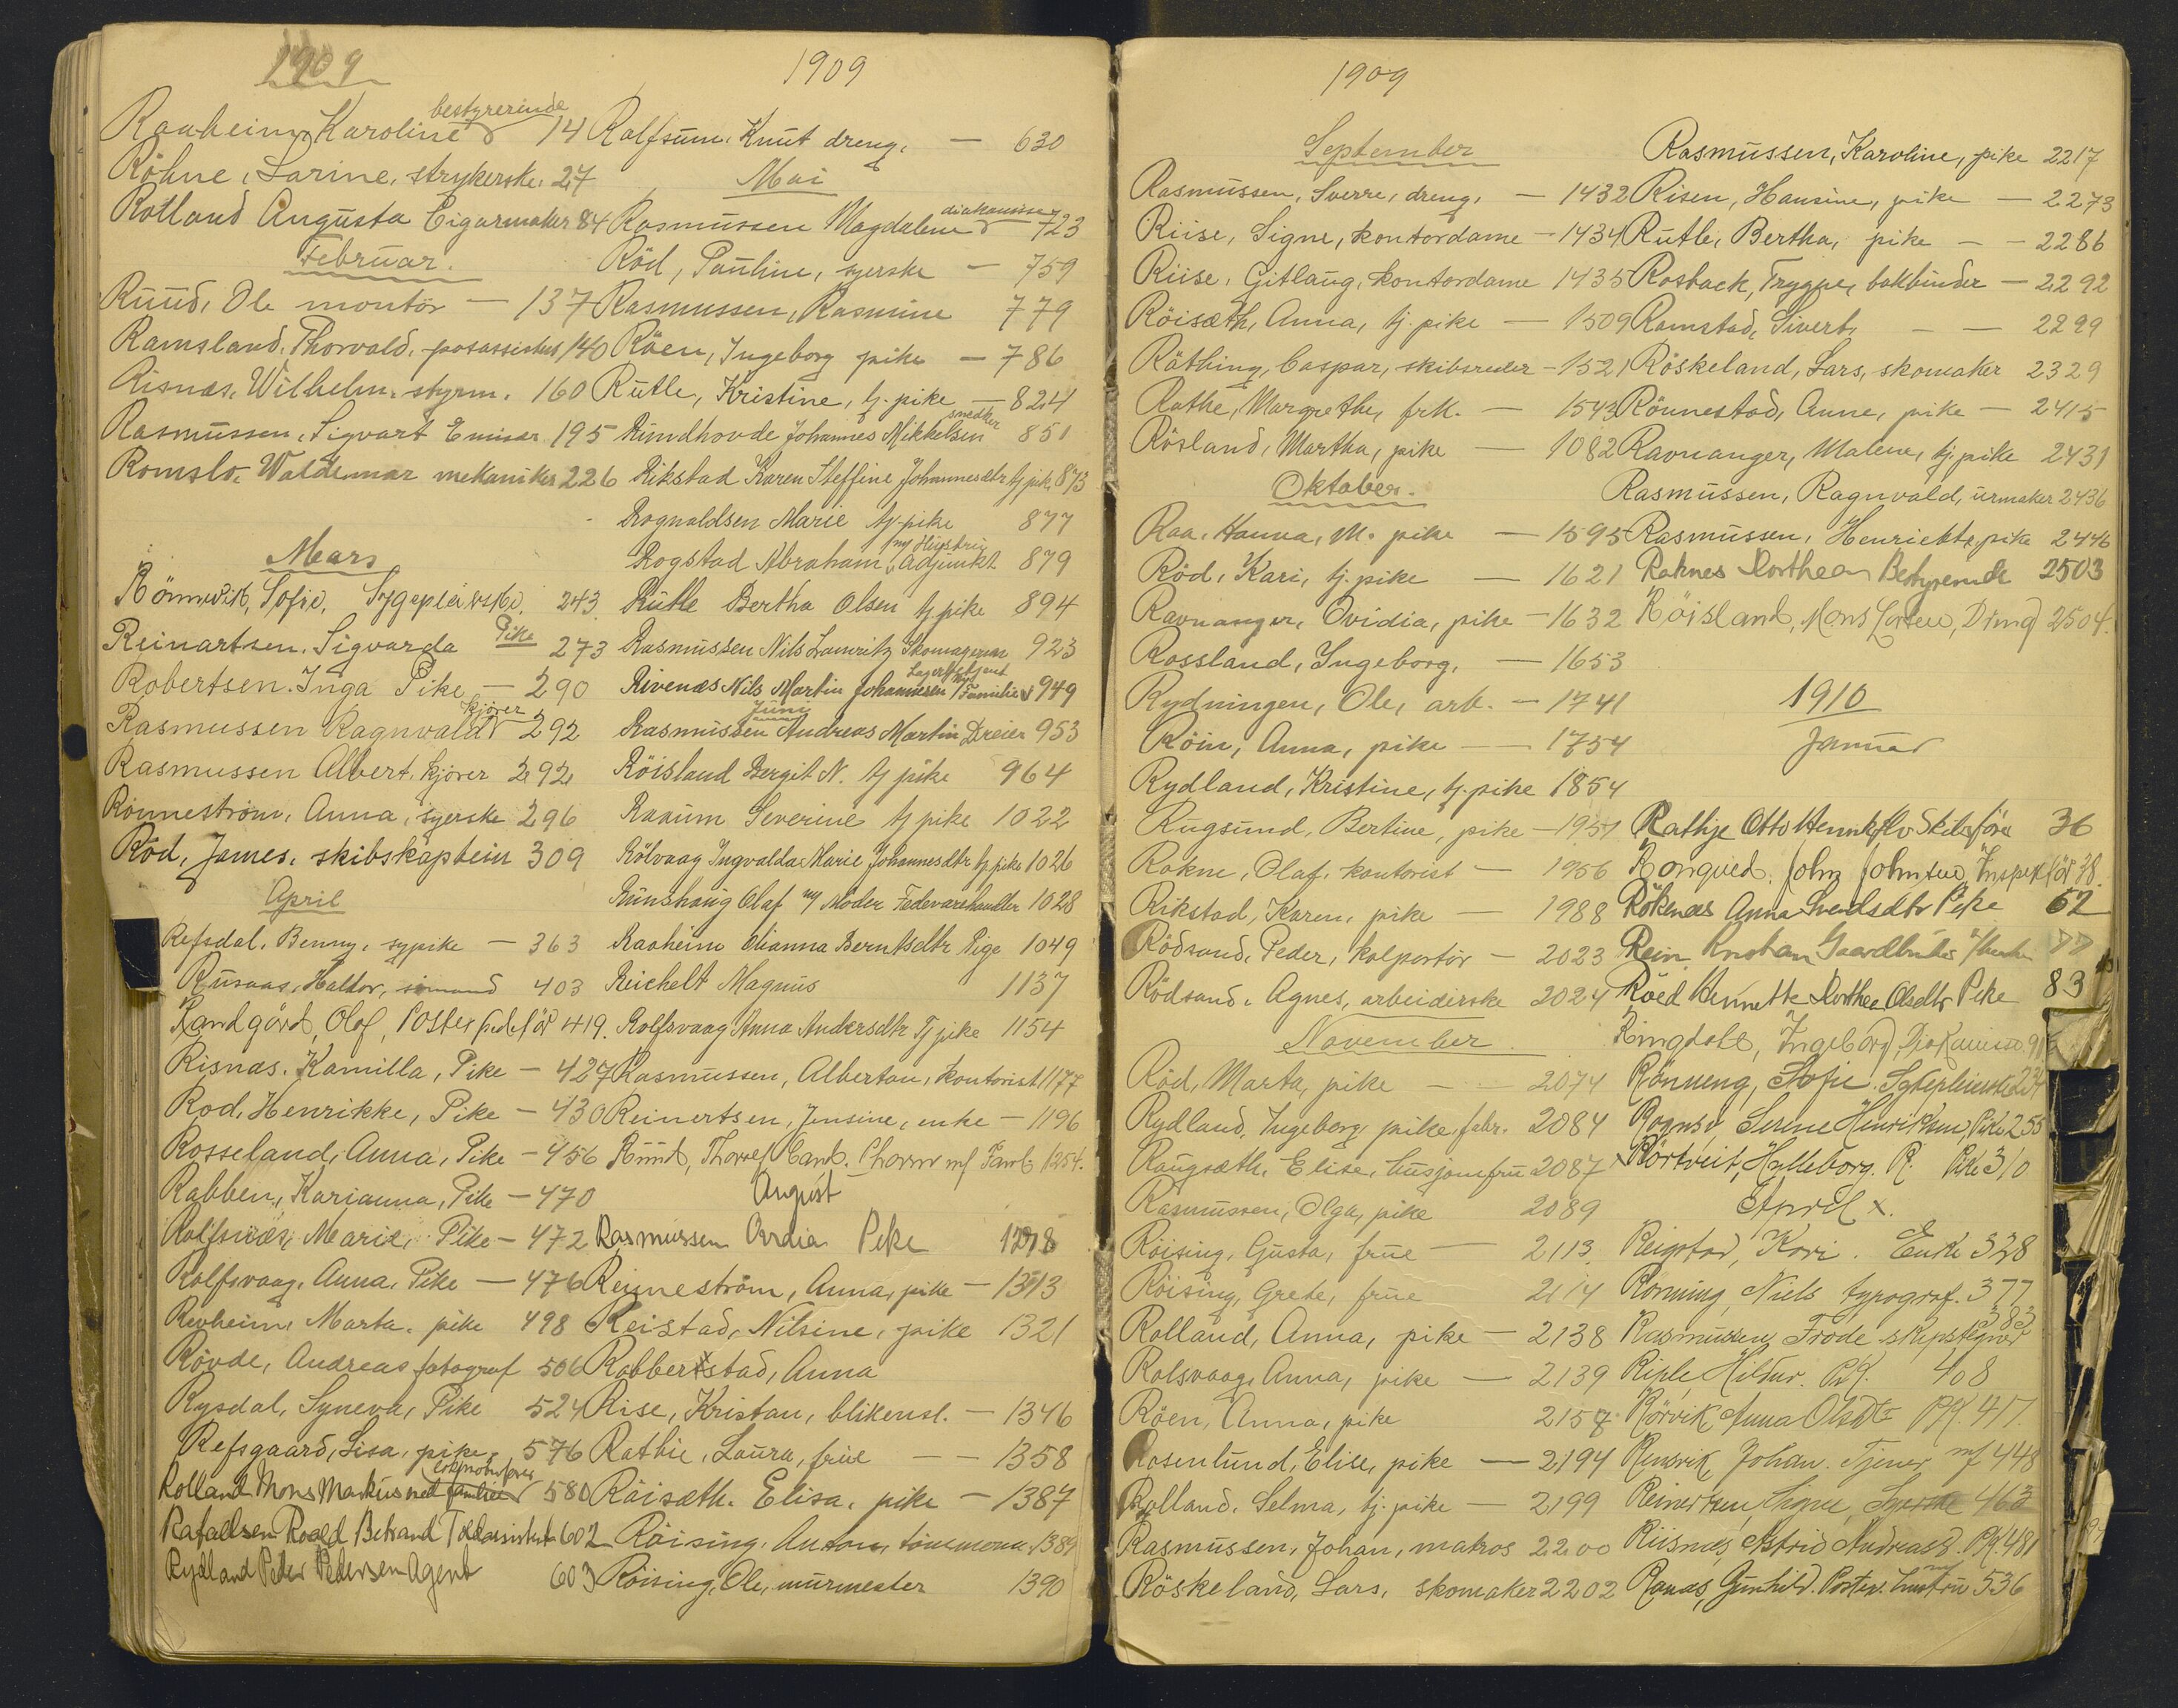 1909
Raaheim, Karoline bestyrerinde 14
Röhne, Larine, strykerske. 27
Rolland Augusta Cigarmaker 84
Februar.
Ruud, Ole montör — 137
Ramsland, Thorvald, posassistent, 140
Risnæs, Wilhelm, styrm. 160
Rasmussen, Sigvart Emisær 195
Romslo, Waldemar mekaniker 226
Mars
Rönnwik, Sofie, Sygepleierske. 243
Reinartsen, Sigvarda Pike 273
Robertsen, Inga Pike — 290
Rasmussen Ragnvald kjörer 292
Rasmussen Albert, kjörer 292
Rönneström, Anna, syerske 296
Röd, James, skibskaptein 309
April
Refsdal, Benny, sypike — 363
Rusaas, Haldor, sömand 403
Randgård, Olaf, 419.
Risnæs, Kamilla, Pike — 427
Rod, Henrikke, Pike — 430
Rosseland, Anna, Pike — 456
Rabben, Karianna, Pike — 470
Rolfsnæs, Marie, Pike — 472
Rolfsvaag, Anna, Pike — 476
Revheim, Marta, pike 498
Rövde, Andreas fotograf 506
Rysdal, Syneva, Pike 524
Refsgaard, Lisa, pike, 576
Rolland Mons Markus med familie 580
Rafaelsen Roald Betrand Toldassistent 602
Rydland Peder Pedersen Agent 603
1909
Rolfsum, Knut dreng, — 630
Mai
Rasmussen Magdalene diakonisse 723
Röd, Pauline, syerske — 759
Rasmussen, Rasmine 779
Röen, Ingeborg pike — 786
Rutle, Kristine, tj. pike — 824
Rundhovde Johannes Mikkelsen snedker 851
Rikstad Karen Steffine Johannesdtr tj pike 873
Rognaldsen Marie tj. pike 877
Rogstad Abraham, adjunkt m/ Hustru 879
Rutle Bertha Olsen tj pike 894
Rasmussen Nils Lauritz Skomagersv 923
Rivenæs Nils Martin Johannesen m/ Familie 949
Juni
Rasmussen Andreas Martin Dreier 953
Röisland Bergit N. tj pike 964
Raaum Severine tj pike 1022
Rölvaag Ingvalda Marie Johannesdtr tj pike 1026
Runshaug Olaf m/ Moder Fedevarehandler 1028
Raaheim Olianna Berntsdtr Pige 1049
Reichelt Magnus 1137
Rolfsvaag Anna Andersdtr Tj pike 1154
Rasmussen, Albertan, kontorist 1177
Reinertsen, Jensine, enke — 1196
Ruud, Thorvel Cand. m/ Faml. 1254.
August
Rasmussen Ovrdia Pike 1278
Reinneström, Anna, pike — 1313
Reistad, Nilsine, pike 1321
Robberstad, Anna
Rise, Kristan, blikensl. — 1346
Rathie, Laura, frue — — 1358
Röisæth, Elisa, pike — 1387
Röising, Anton, tömmerm. 1389
Röising, Ole, murmester 1390
1909
September
Rasmussen, Sverre, dreng, — 1432
Riise, Signe, kontordame — 1434
Riise, Gitlaug, kontordame 1435
Röisæth, Anna, tj. pike — 1509
Räthing, Caspar, skibsreder — 1521
Rathe, Margrethe, frk. — 1543
Rösland, Martha, pike — 1082
Oktober.
Raa, Hanna, M. pike — 1595
Röd, Kari, tj. pike — 1621
Ravnanger, Ovidia, pike — 1632
Rossland, Ingeborg, — 1653
Rydningen, Ole, arb. — 1741
Röin, Anna, pike — 1754
Rydland, Kristine, tj. pike 1854
Rugsund, Bertine, pike — 1951
Rokne, Olaf, kontorist — 1956
Rikstad, Karen, pike — 1988
Rödsand, Peder, kolportör — 2023
Rödsand, Agnes, arbeiderske 2024
November
Röd, Marta, pike — 2074
Rydland, Ingeborg pike, fabr. 2084
Raugsæth, Elise, husjomfru 2087
Rasmussen, Olga, pike 2089
Röising, Gusta, frue — 2113
Röising, Grete, frue 2114
Rolland, Anna, pike — 2138
Rolsvaag, Anna, pike — 2139
Röen, Anna, pike 2157
Rosenlund, Elise, pike — 2194
Rolland, Selma, tj. pike — 2199
Rasmussen, Johan, matros 2200
Röskeland, Lars, skomaker 2202
Rasmussen, Karoline, pike 2217
Risen, Hansine, pike — 2273
Rutle, Bertha, pike — — 2286
Rosback, Trygve, bokbinder — 2292
Ramstad, Sivert, — — 2299
Röskeland, Lars, skomaker 2329
Rönnestad, Anne, pike — 2415
Ravnanger, Malene, tj. pike 2431
Rasmussen, Ragnvald, urmaker 2436
Rasmussen, Henriette, pike 2446
Raknes Dorthea Bestyrerinde 2503
Röisland, Mons Larsen, Dreng 2504.
1910
Januar
Rathje Otto 36
Rongved, John Johnsen, Inspektör 38.
Röknæs Anna Svendsdtr Pike 52
Rein 77
Röed Hennette Dorthea Olsdtr Pike 83
Ringdale, Ingeborg, Diakonisse
Rönneng, Sofie. Sykepleierske 234
Serine Henriksen, Pike 255
Rörtveit, Halleborg. R. Pike 310
April x.
Reigstad, Kari. Enke 328
Ronning, Niels typograf. 377
Rasmussen, Frode 383
Riple, Hildur. PK. 408
Rörvik Anna Olsdtr PK. 417.
Rensvik, Johan. Tjener m/ 448
Reinertsen, Signe, Syerske 463
Riisnæs, Astrid Andreasd. PK. 481
Ranæs, Gunhild. 536